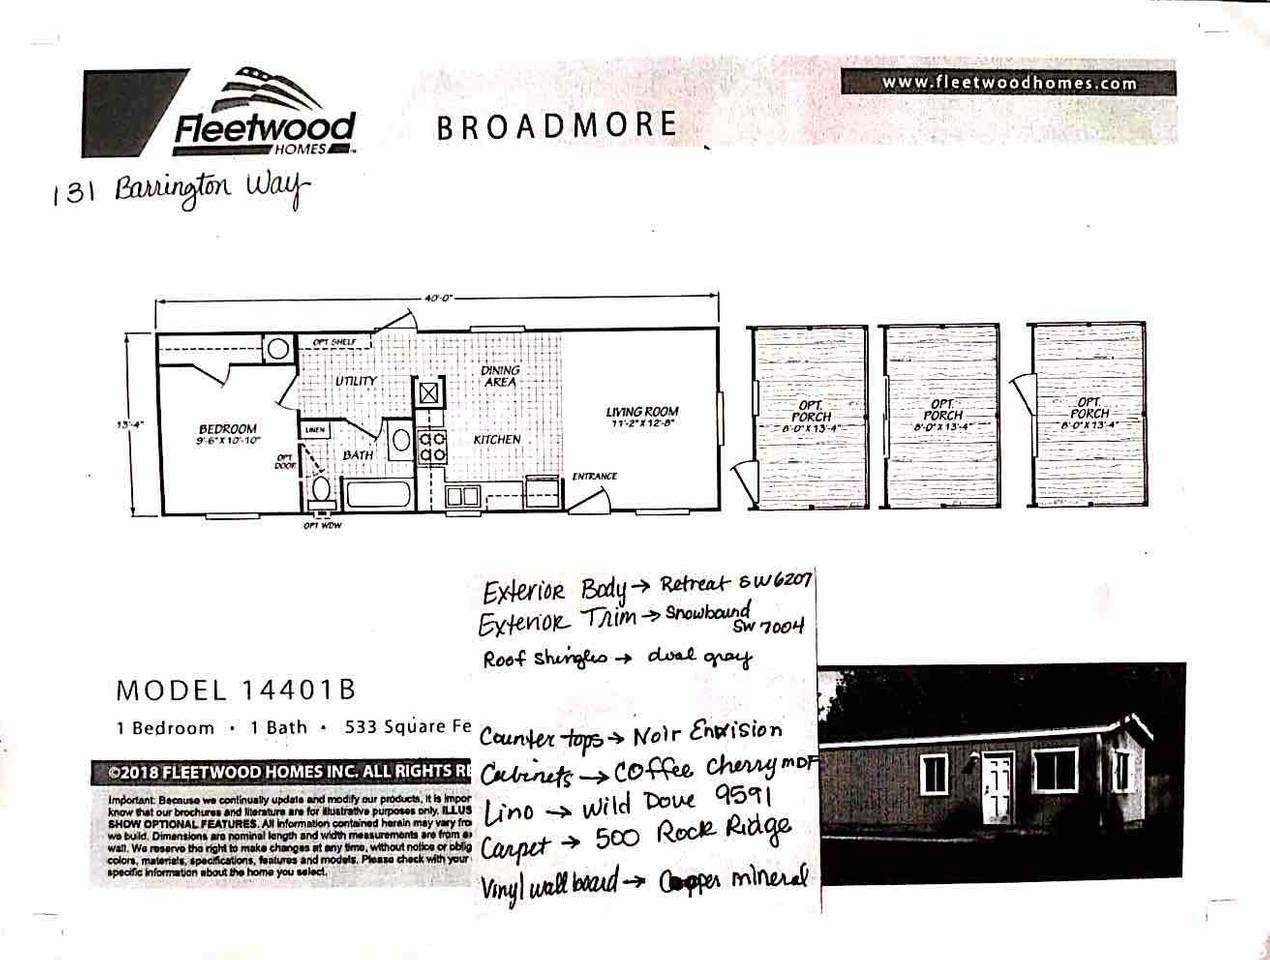 Fleetwood
HOMES
BROADMORE
www.fleetwoodhomes.com
131 Barrington Way
40'-0"
13'-4"
OPT SHELF
UTILITY
DINING
AREA
BEDROOM
9'-6" X 10'-10"
LINEN
OPT
DOOR
BATH
KITCHEN
LIVING ROOM
11'-2" X 12'-8"
ENTRANCE
OPT WDW
OPT.
PORCH
8'-0" X 13'-4"
OPT.
PORCH
8'-0" X 13'-4"
OPT.
PORCH
8'-0" X 13'-4"
Exterior Body → Retreat SW6207
Exterior Trim → Snowbound
SW 7004
Roof Shingles → dual gray
Counter tops → Noir Envision
Cabinets → Coffee Cherry MDF
Lino → Wild Dove 9591
Carpet → 500 Rock Ridge
Vinyl wall board → Copper mineral
MODEL 14401B
1 Bedroom · 1 Bath · 533 Square Fe
©2018 FLEETWOOD HOMES INC. ALL RIGHTS RE
Important: Because we continually update and modify our products, it is impor
know that our brochures and literature are for illustrative purposes only. ILLUS
SHOW OPTIONAL FEATURES. All information contained herein may vary fro
we build. Dimensions are nominal length and width measurements are from ex
wall. We reserve the right to make changes at any time, without notice or oblig
colors, materials, specifications, features and models. Please check with your
specific information about the home you select.